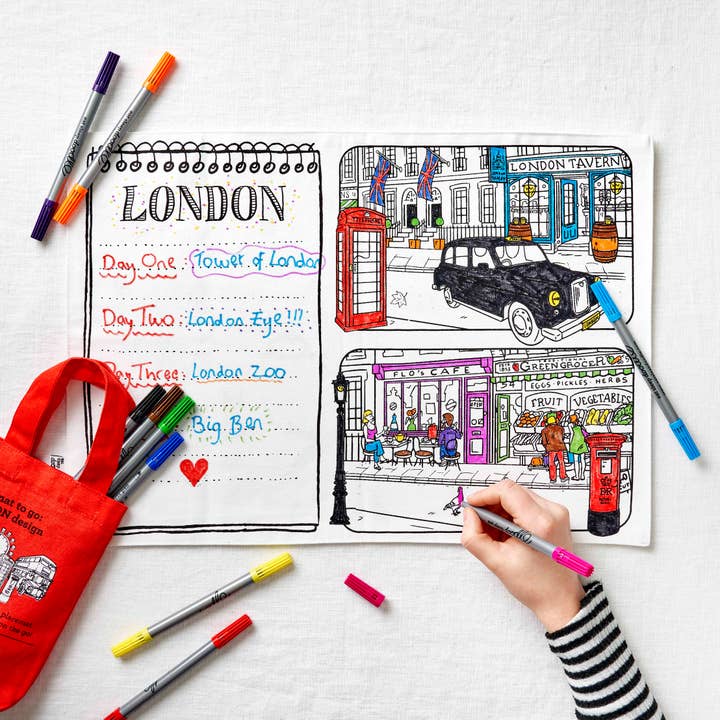 LONDON
Day One: Tower of London
Day Two: London Eye!!!
Day Three: London Zoo
Big Ben
LONDON TAVERN
TELEPHONE
FLO'S CAFE
GREENGROCER
54 EGGS·PICKLES·HERBS
FRUIT VEGETABLES
mat to go:
ON design
placemat
on the go!